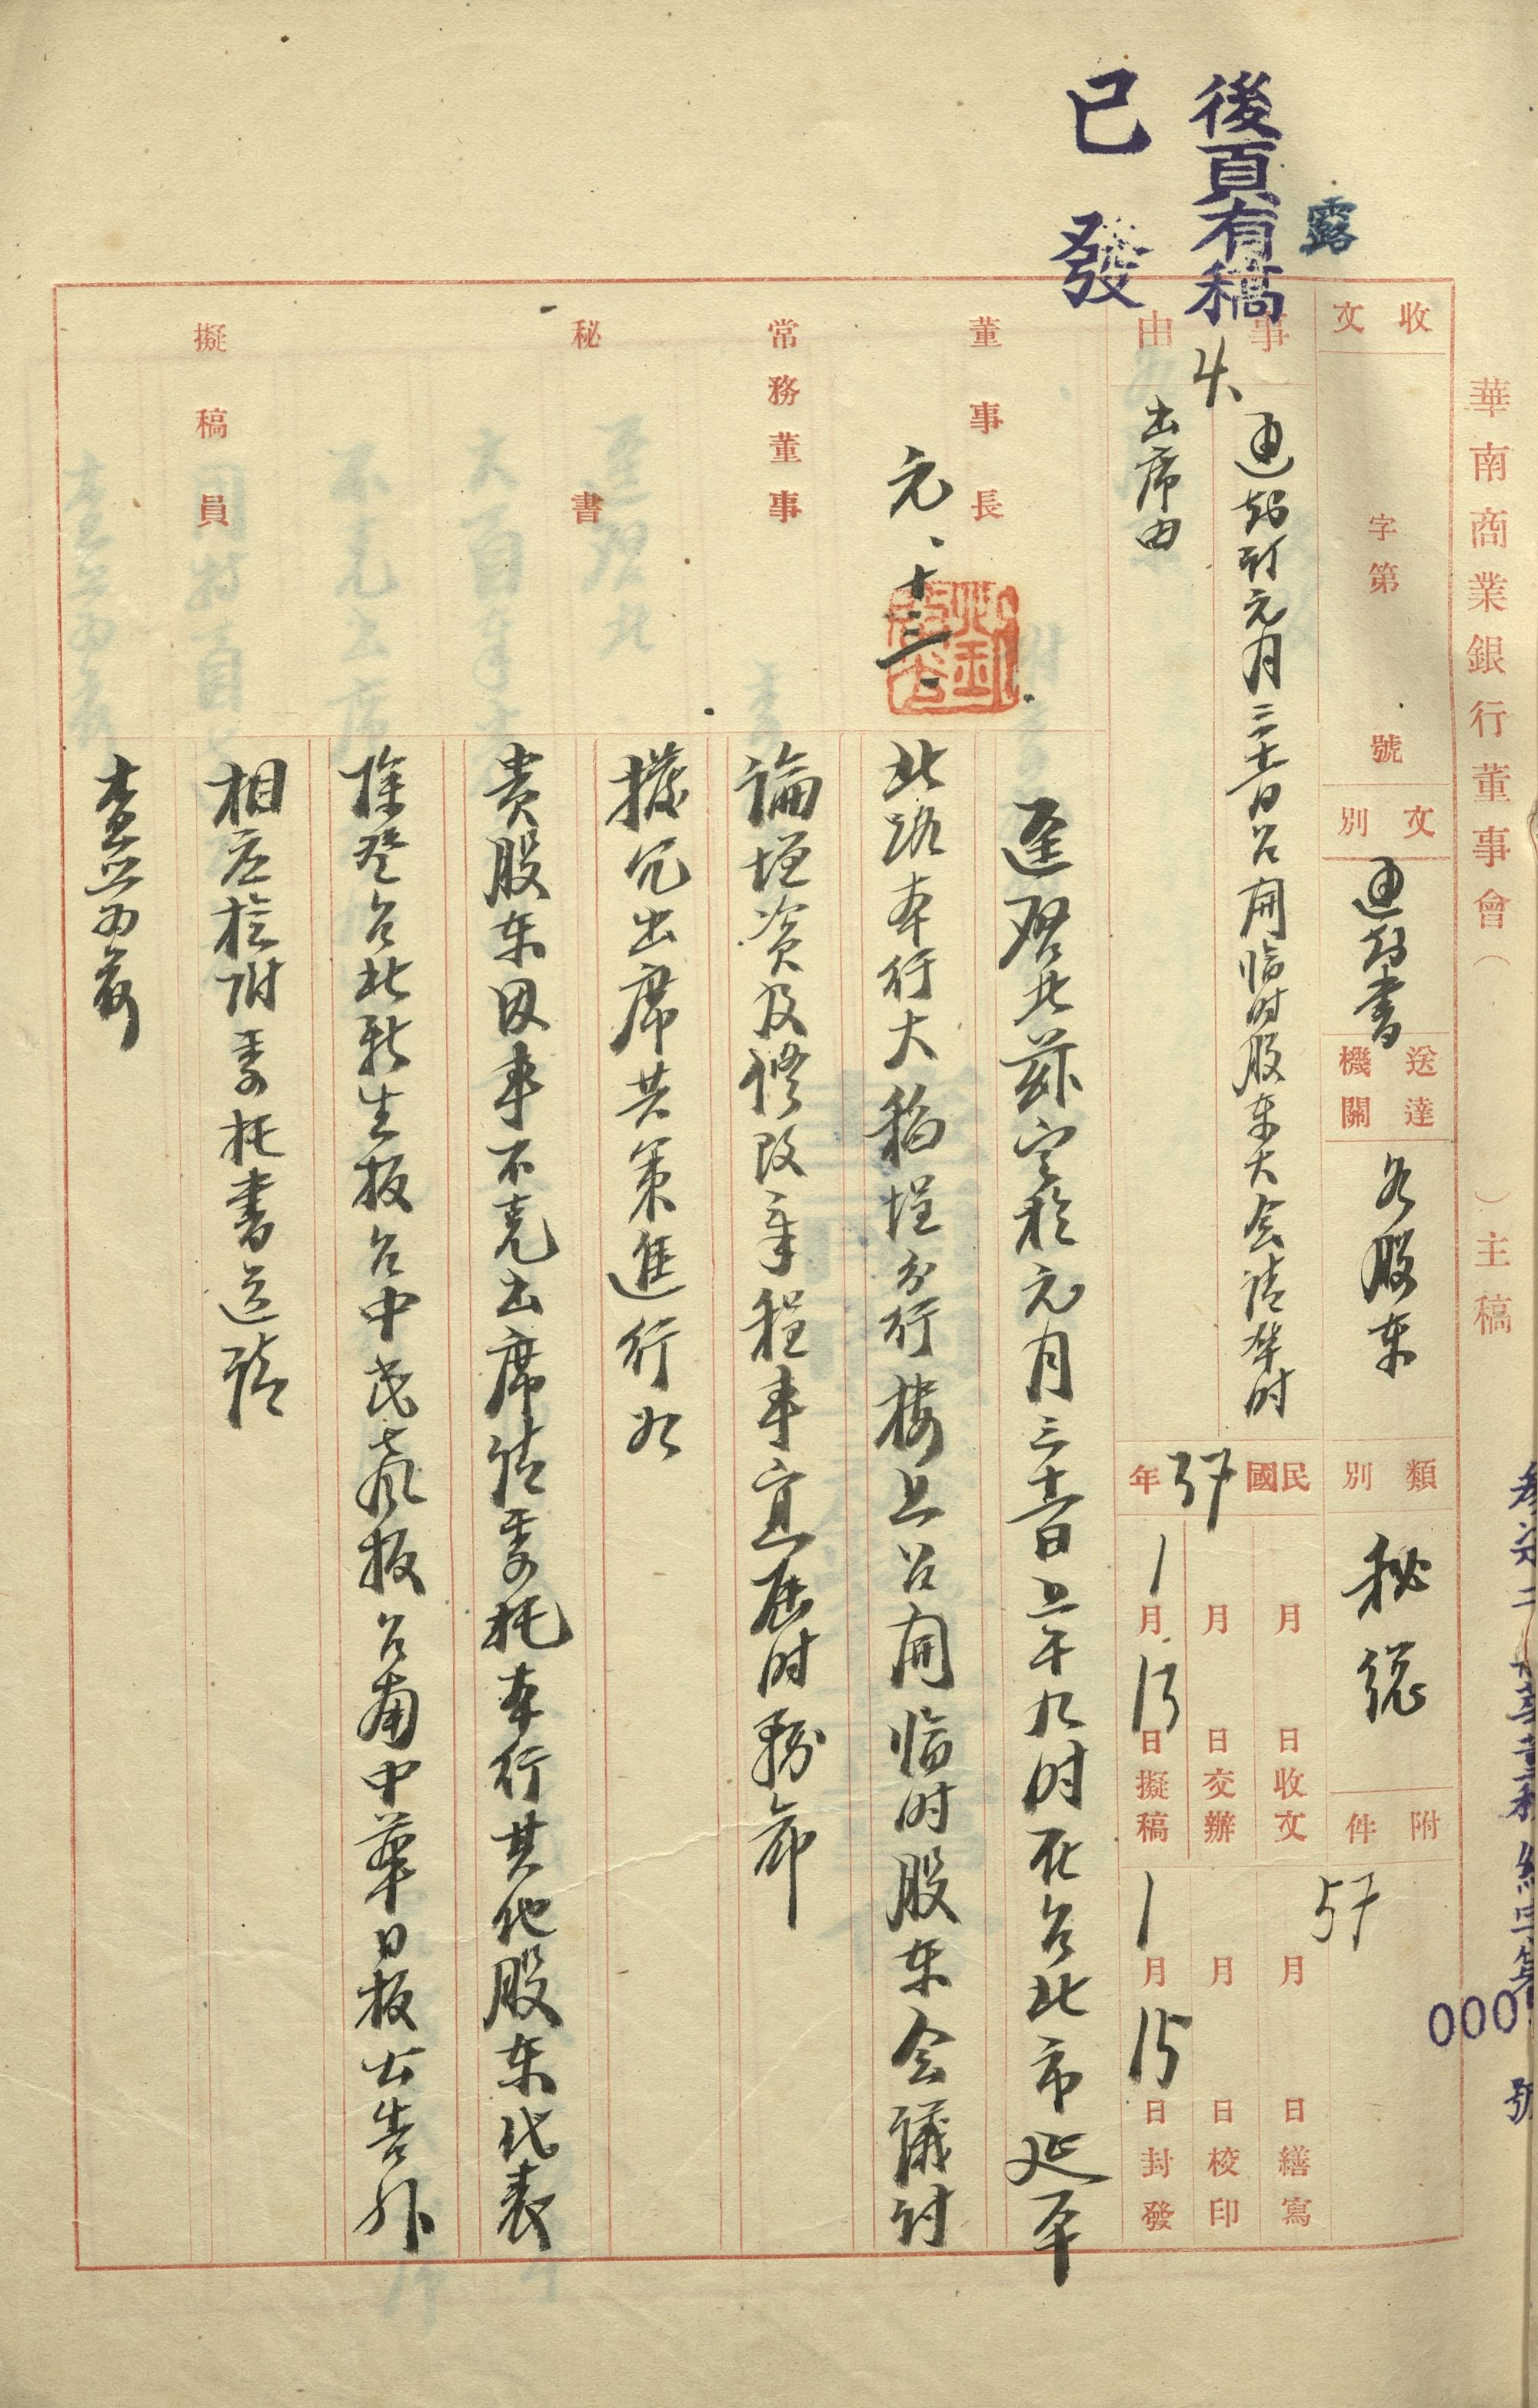 華南商業銀行董事會（　）主稿
後頁有稿
已發
露
收文
字第
號
文別
通知書
送達機關
各股東
類別
秘總
附件
57
000
號
事由
通知訂元月三十一日召開臨时股東大会請準时
出席由
民國37年
月日收文
月日交辦
1月13日擬稿
月日繕寫
月日校印
1月15日封發
董事長
元、十三、
常務董事
秘書
擬稿員
逕啓者茲定於元月三十一日上午九时在台北市延平
北路本行大稻埕分行樓上召開臨时股東会議討
論增資及修改章程事宜屆时務希
撥冗出席共策進行如
貴股東因事不克出席請委托本行其他股東代表
除登台北新生报台中民声报台南中華日报公告外
相应检附委托書送請
查照为荷